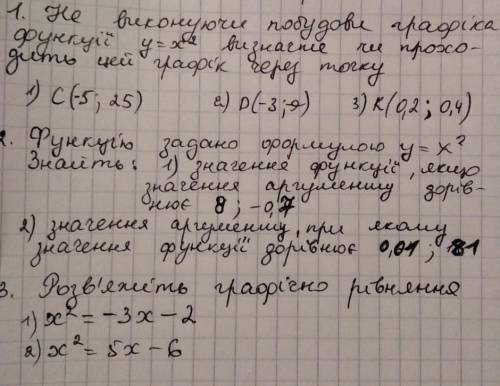 1. Не виконуючи побудови графіка
функції y=x² визначте чи прохо-
дить цей графік через точку
1) C(-5; 25) 2) D(-3;-9) 3) K(0,2; 0,4)
2. Функцію задано формулою y=x²
Знайть: 1) значення функції, якщо
значення аргументу дорів-
нює 8; -0,7
2) значення аргументу, при якому
значення функції дорівнює 0,01; 81
3. Розв'яжіть графічно рівняння
1) x²=-3x-2
2) x²=5x-6